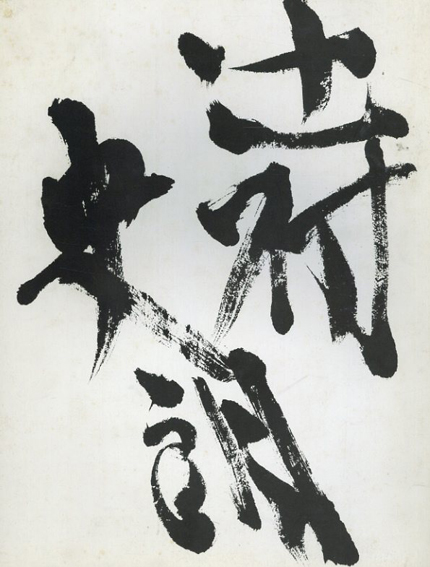 辻村
史朗